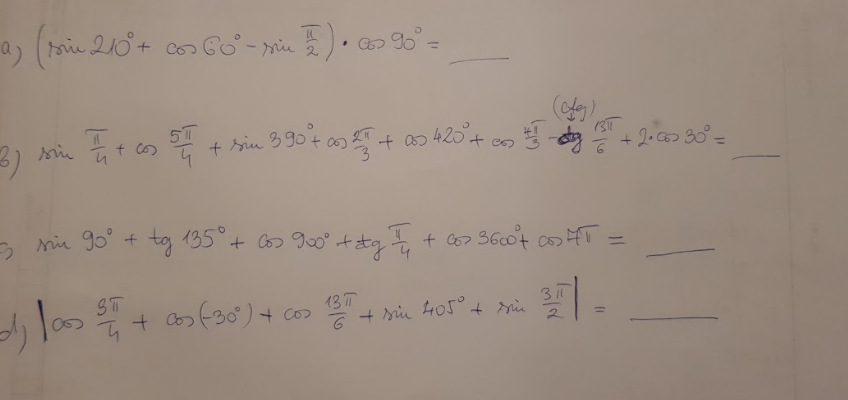 a) (sin 210° + cos 60° - sin π/2) · cos 90° = ____
(ctg)
b) sin π/4 + cos 5π/4 + sin 390° + cos 2π/3 + cos 420° + cos 4π/3 - ctg 13π/6 + 2·cos 30° = ____
c) sin 90° + tg 135° + cos 900° + tg π/4 + cos 3600° + cos 7π = ____
d) |cos 3π/4 + cos(-30°) + cos 13π/6 + sin 405° + sin 3π/2| = ____